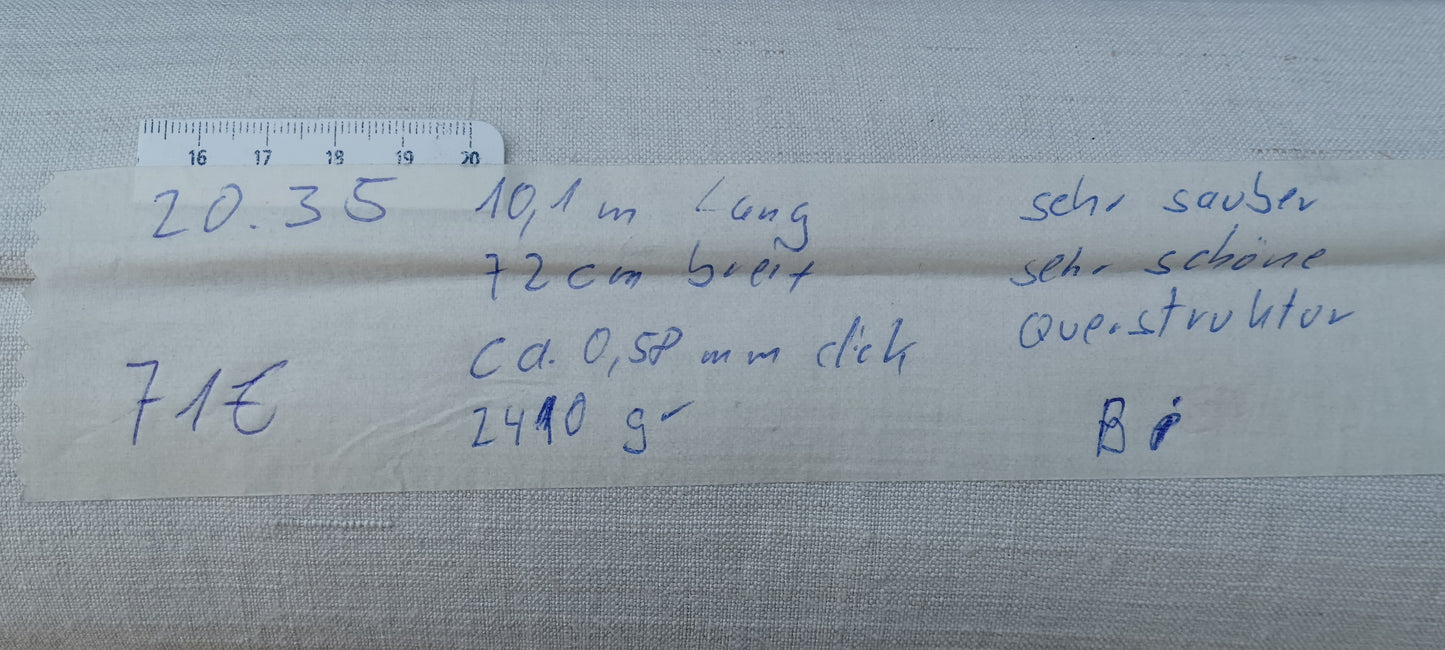 16 17 18 19 20
20.35
71€
10,1 m Lang
72 cm breit
ca. 0,58 mm dick
2410 gr
sehr sauber
sehr schöne
Querstruktur
Bi